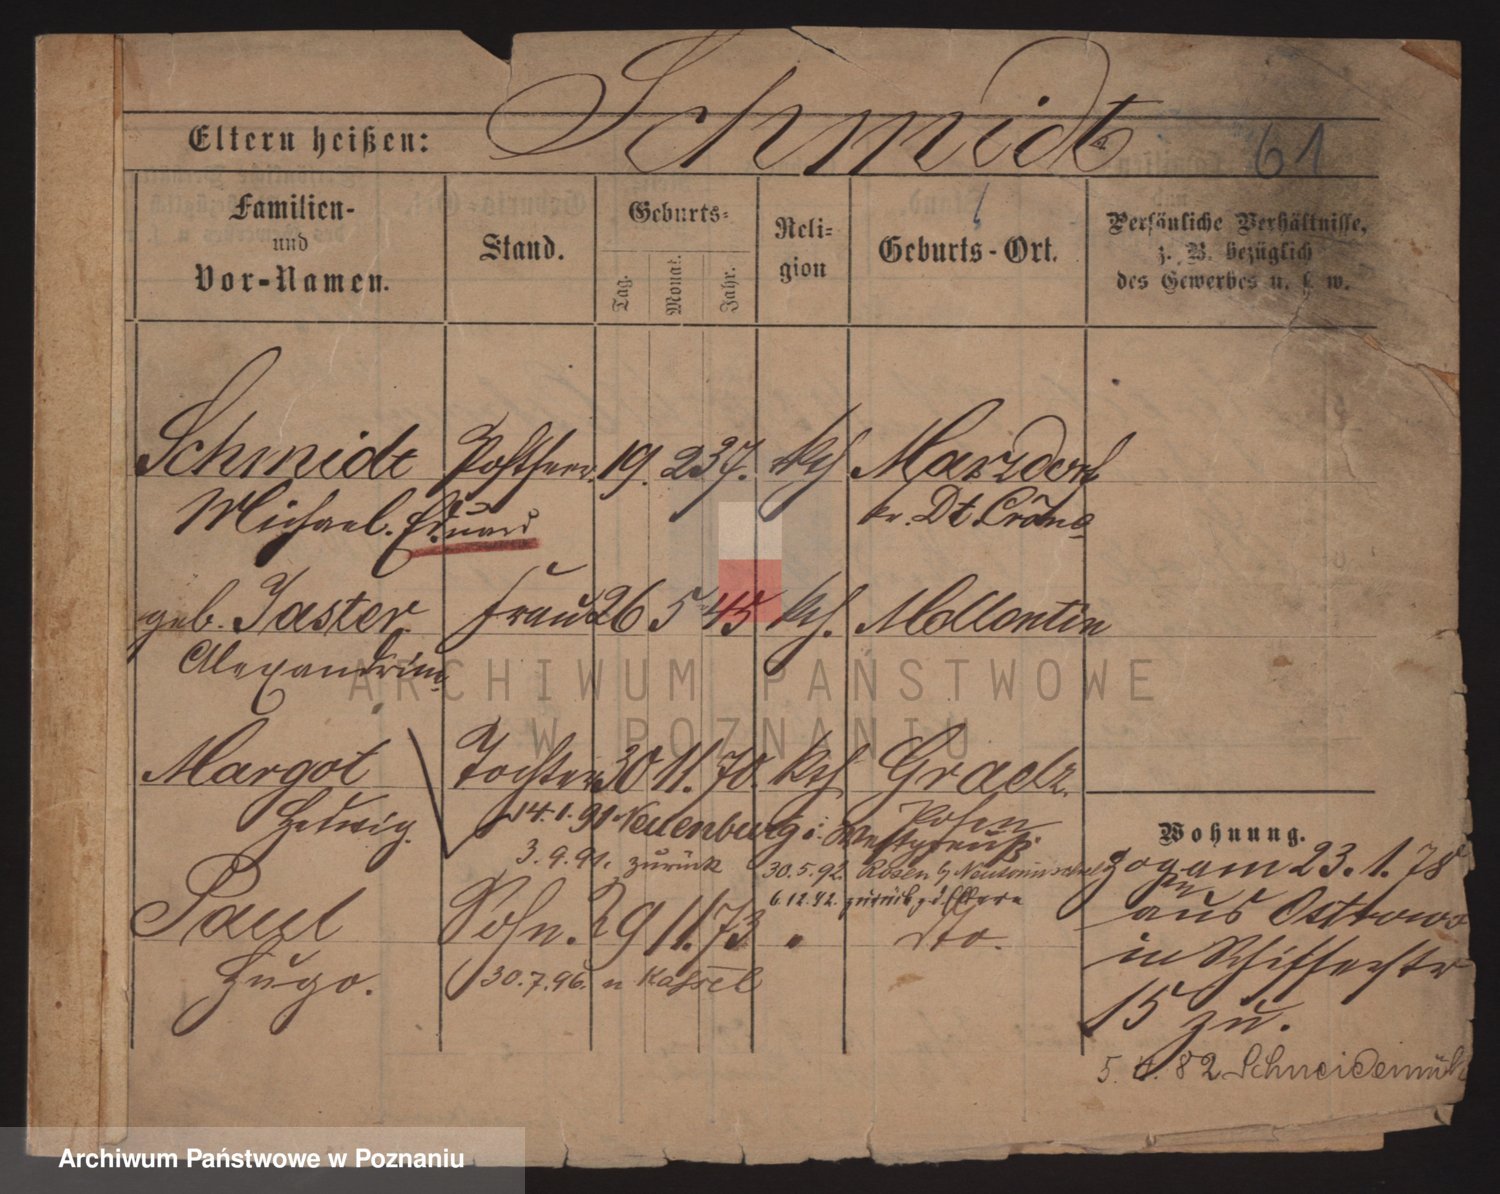 Schmidt 61
Eltern heißen:
Familien-
und
Vor-Namen.
Stand.
Geburts-
Tag. Monat. Jahr.
Reli-
gion
Geburts-Ort.
Persönliche Verhältnisse,
z. B. bezüglich
des Gewerbes u. s. w.
Schmidt 19. 2 37. kth Marzdorf
Michael. Eduard kr. Dt Crone
geb. Jaster Frau 26 5 45 kth. Mellentin
Alexandrine
Margot Tochter 30 11. 70. kth Graetz.
Hedwig. 14.1.91 Neuenburg i. Westpreuß. Posen
3.9.91. zurück 30.5.92.
6.12.92. zurück z. d. Eltern
Paul Sohn. 29 11. 73 " dto.
Hugo. 30.7.96. n Kassel
Wohnung.
zog am 23.1.78
aus Ostrowo
in Schifferstr
15 zu.
5. 4. 82 Schneidemühl
ARCHIWUM PAŃSTWOWE
W POZNANIU
Archiwum Państwowe w Poznaniu